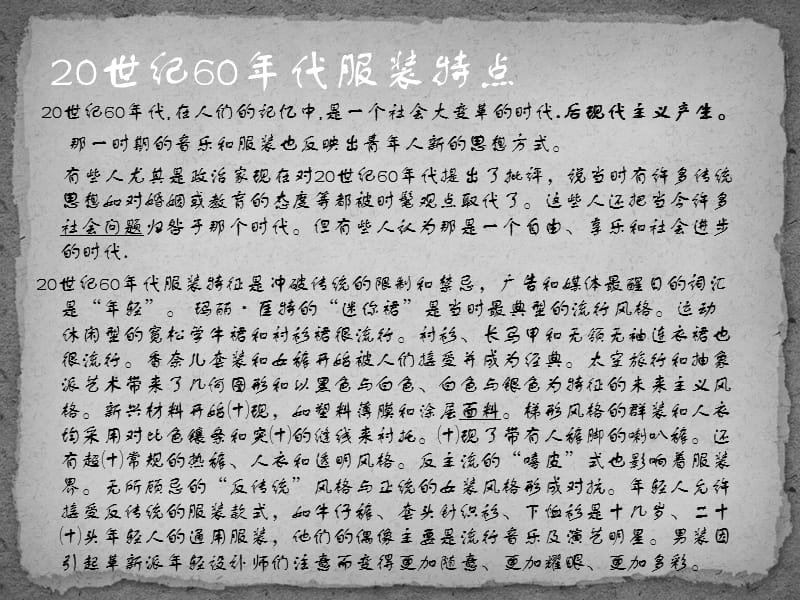 20世纪60年代服装特点
20世纪60年代,在人们的记忆中,是一个社会大变革的时代.后现代主义产生。
那一时期的音乐和服装也反映出青年人新的思想方式。
有些人尤其是政治家现在对20世纪60年代提出了批评，说当时有许多传统
思想如对婚姻或教育的态度等都被时髦观点取代了。这些人还把当今许多
社会问题归咎于那个时代。但有些人认为那是一个自由、享乐和社会进步
的时代.
20世纪60年代服装特征是冲破传统的限制和禁忌，广告和媒体最醒目的词汇
是“年轻”。玛丽·匡特的“迷你裙”是当时最典型的流行风格。运动
休闲型的宽松学生裙和衬衫裙很流行。衬衫、长马甲和无领无袖连衣裙也
很流行。香奈儿套装和女裤开始被人们接受并成为经典。太空旅行和抽象
派艺术带来了几何图形和以黑色与白色、白色与银色为特征的未来主义风
格。新兴材料开始(十)现，如塑料薄膜和涂层面料。梯形风格的群装和大衣
均采用对比色镶条和突(十)的缝线来衬托。(十)现了带有大裤脚的喇叭裤。还
有超(十)常规的热裤、大衣和透明风格。反主流的“嘻皮”式也影响着服装
界。无所顾忌的“反传统”风格与正统的女装风格形成对抗。年轻人允许
接受反传统的服装款式，如牛仔裤、套头针织衫、下恤衫是十几岁、二十
(十)头年轻人的通用服装，他们的偶像主要是流行音乐及演艺明星。男装因
引起革新派年轻设计师们注意而变得更加随意、更加耀眼、更加多彩。